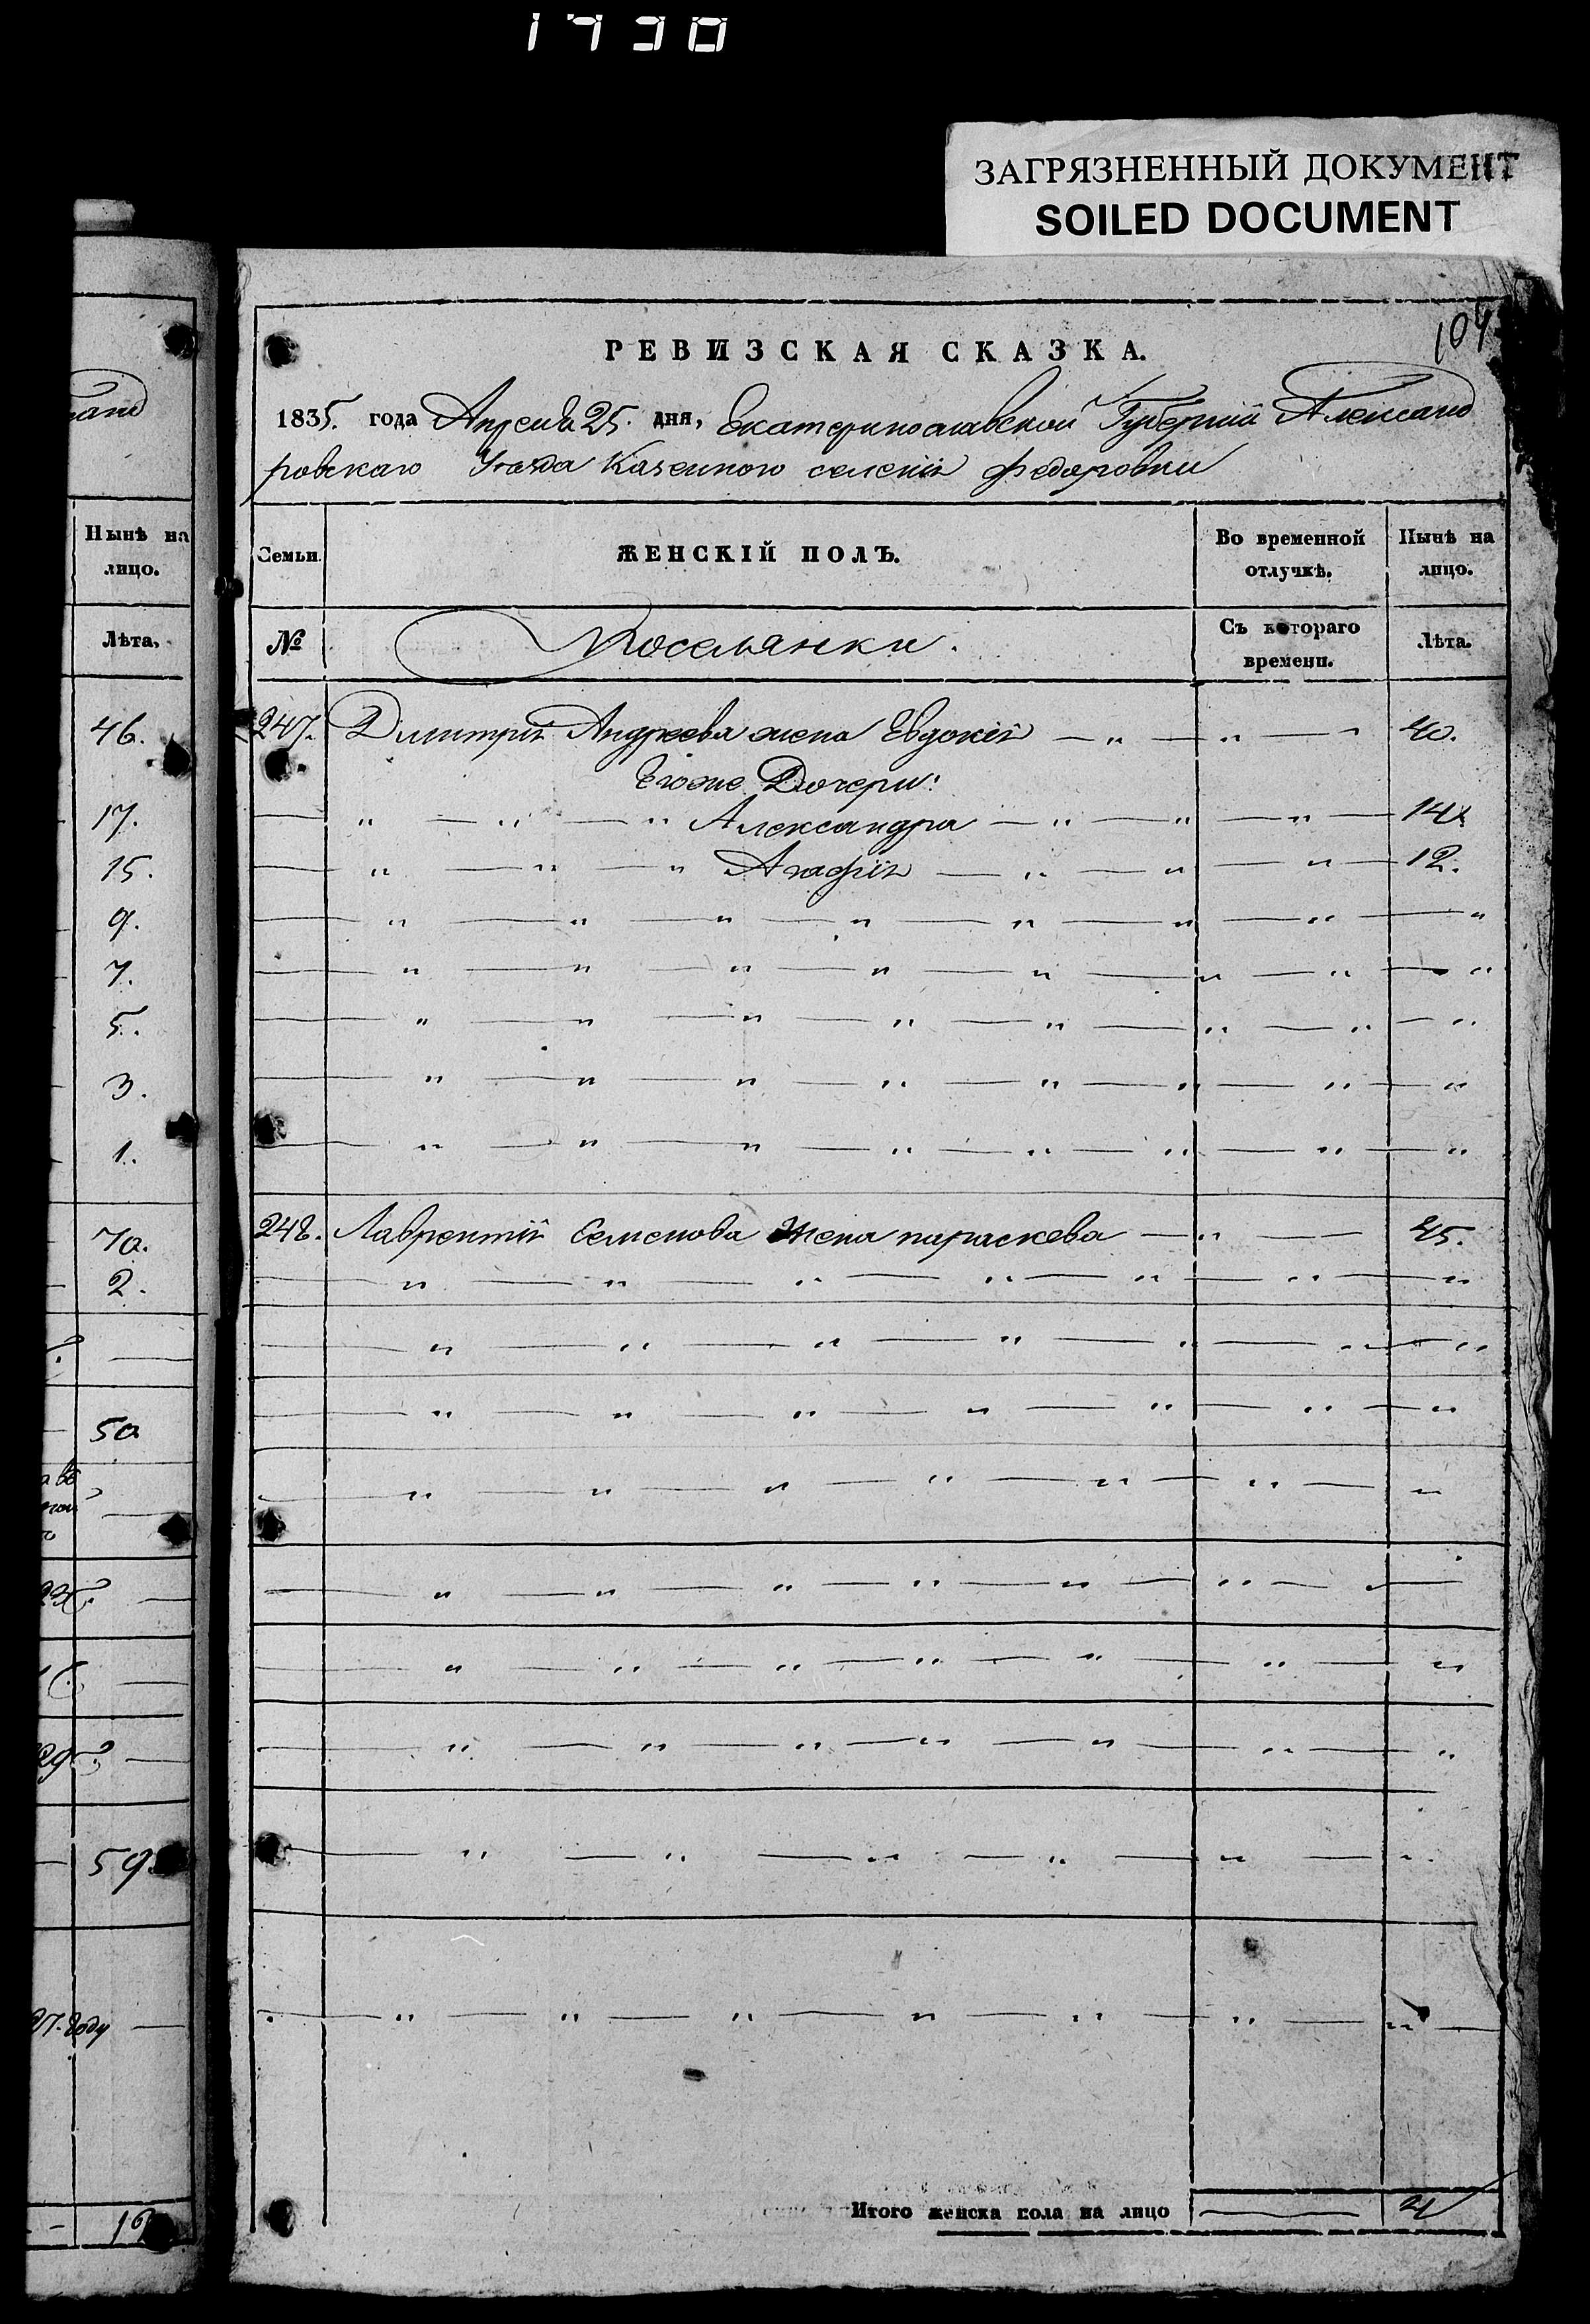 ЗАГРЯЗНЕННЫЙ ДОКУМЕНТ
SOILED DOCUMENT
104
РЕВИЗСКАЯ СКАЗКА.
1835. года Апреля 25. дня, Екатеринославской Губерніи Александ
ровскаго Уезда Казенного селенія Федоровки
Семьи.
ЖЕНСКІЙ ПОЛЪ.
Во временной отлучкѣ.
Нынѣ на лицо.
№
Поселянки.
Съ котораго времени.
Лѣта.
247. Димитрія Андреева жена Евдокія — „ — „ — „ 40.
Егоже Дочери:
— „ — „ — „ Александра — „ — „ — „ — 14.
— „ — „ — „ Агафія — „ — „ — „ — 12.
248. Лаврентія Семенова Жена параскева — „ — — 45.
Итого женска пола на лицо — 4
Нынѣ на
лицо.
Лѣта.
46.
17.
15.
9.
7.
5.
3.
1.
70.
2.
50
59.
27. году